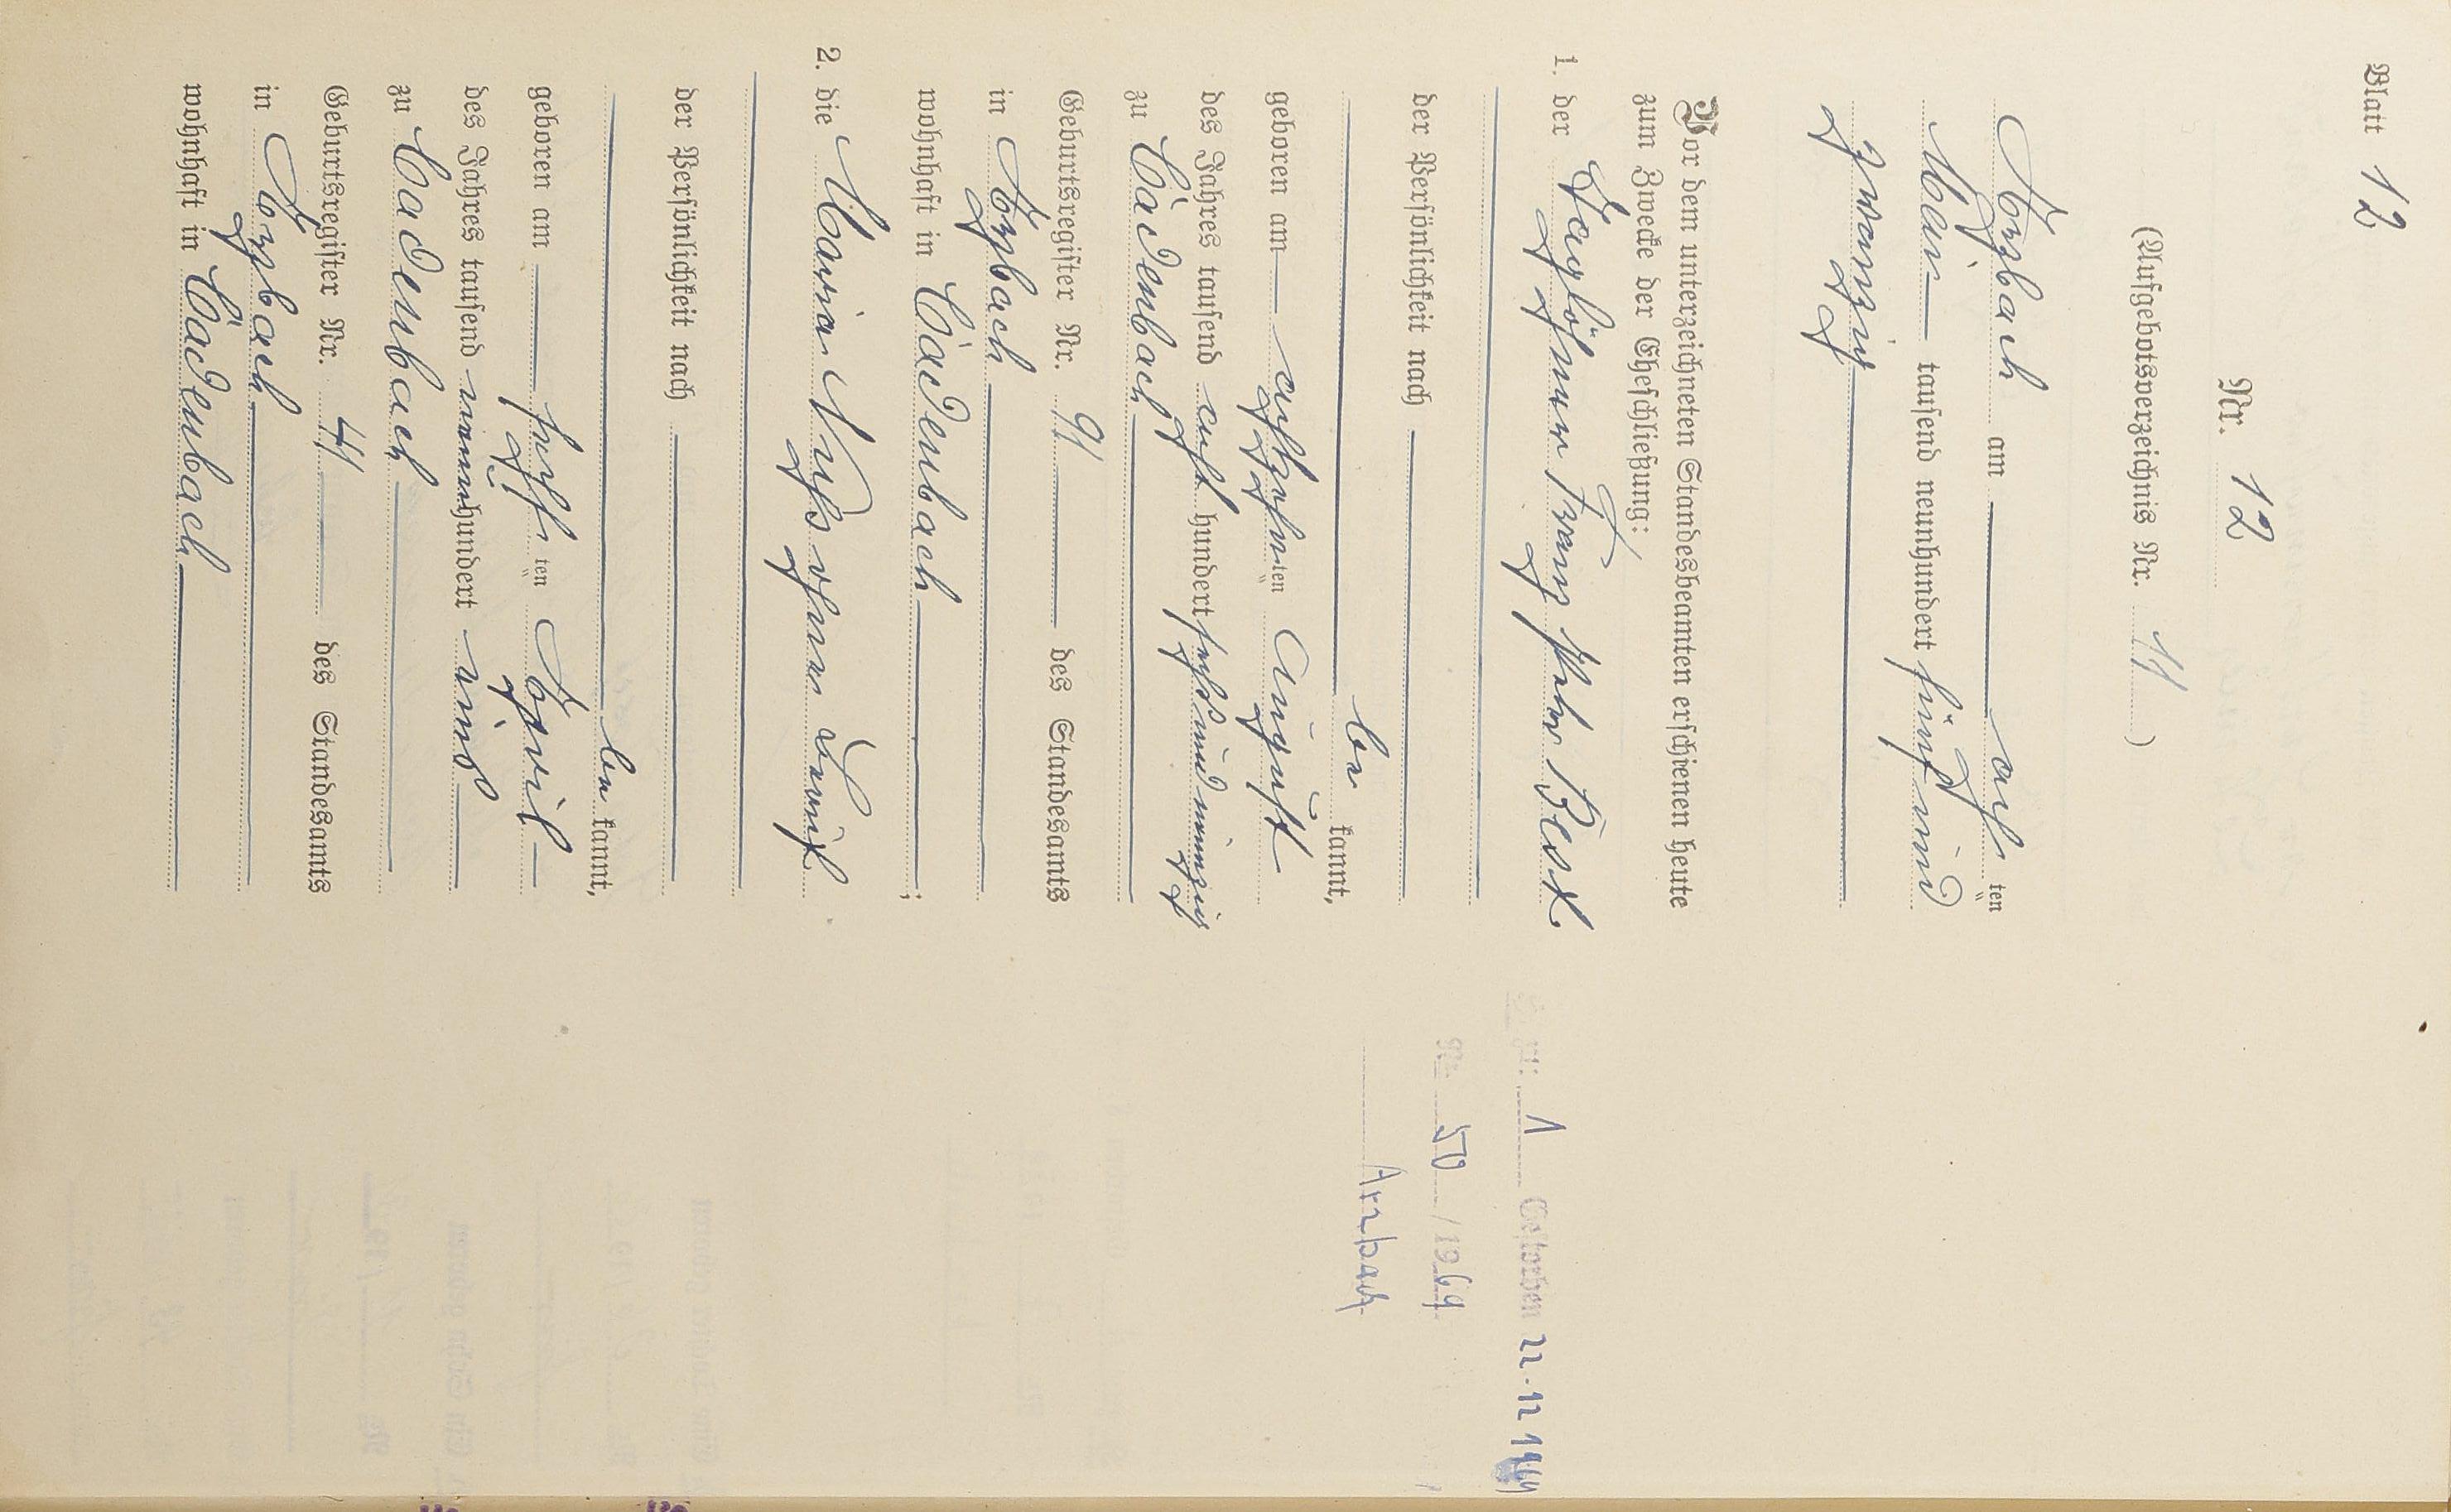 Blatt 12
Nr. 12
(Aufgebotsverzeichnis Nr. 11)
Arzbach am acht ten
Mai tausend neunhundert fünfund
zwanzig
Vor dem unterzeichneten Standesbeamten erschienen heute
zum Zwecke der Eheschließung:
1. der Taglöhner Franz Peter Best
der Persönlichkeit nach
be kannt,
geboren am achtzehn ten August
des Jahres tausend acht hundert sechsundneunzig
zu Cadenbach
Geburtsregister Nr. 91 des Standesamts
in Arzbach
wohnhaft in Cadenbach;
2. die Maria ohne Beruf
der Persönlichkeit nach
be kannt,
geboren am ten April
des Jahres tausend neunhundert eins
zu Cadenbach
Geburtsregister Nr. 41 des Standesamts
in Arzbach
wohnhaft in Cadenbach
zu: 1 Gestorben 22.12.1964
Nr. 50/1964
Arzbach